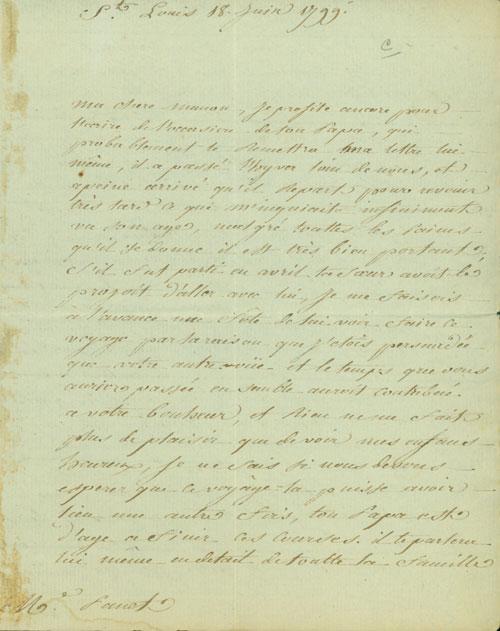 St. Louis 18 juin 1799.
ma chere manon, je profite encore pour
t'ecrire de l'occasion de ton papa, qui
probablement te remettra ma lettre lui
même, il a passé l'hyver loin de nous, et
apeine arrivé qu'il repart pour revenir
très tard ce qui m'inquiait infiniment
vu son age, malgré touttes les peines
qu'il se donne il est très bien portant,
s'il fut parti en avril ta sœur avoit le
projoit d'aller avec lui, je me faisois
a l'avance une fete de lui voir faire ce
voyage par la raison que j'etois persuadée
que votre entrevüe et le temps que vous
auriez passée en semble auroit contribué
a votre bonheur, et rien ne me fait
plus de plaisir que de voir mes enfans
heureux, je ne sais si nous devons
esperer que ce voyâge la puisse avoir
lieu une autre fois, ton papa est
d'age a finir ces courses. il te parlera
lui même en detail de toutte la famille
Me.